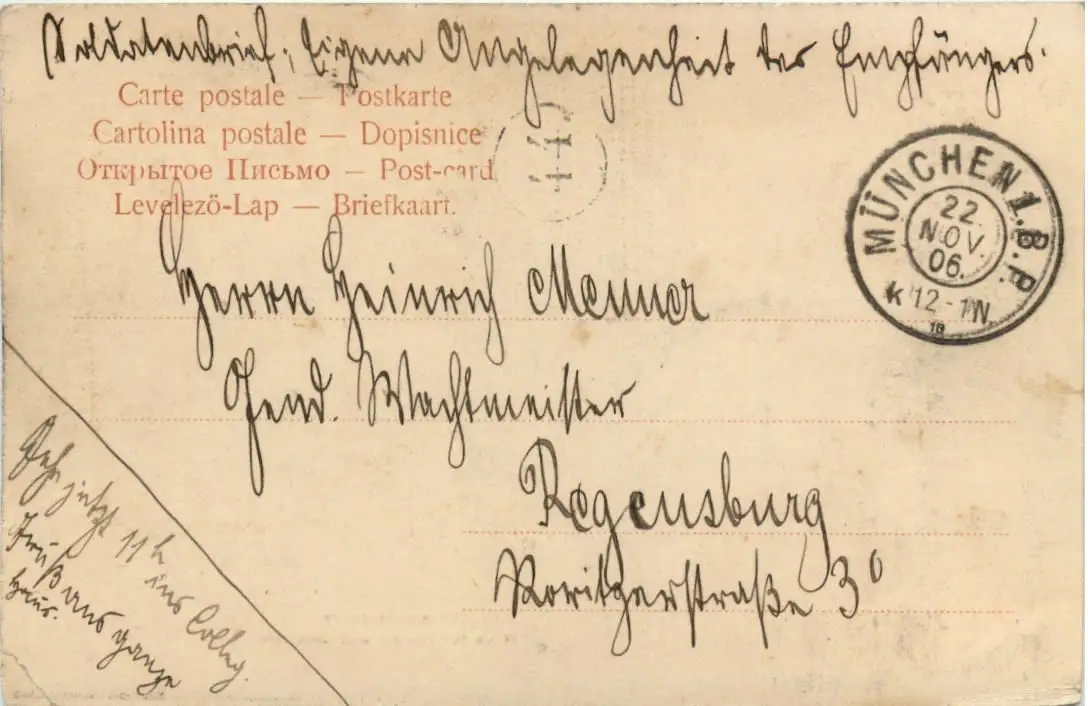 Soldatenbrief, Eigene Angelegenheit des Empfängers.
Carte postale — Postkarte
Cartolina postale — Dopisnice
Открытое Письмо — Post-card
Levelező-Lap — Briefkaart.
MÜNCHEN 1. B.P.
22.
NOV.
06.
K 12-1N.
Herrn Heinrich Menner
Gend. Wachtmeister
Regensburg
Moritzerstraße 3⁰
Geh jetzt 11 h
ins Colleg.
Gruß ans ganze
Haus.